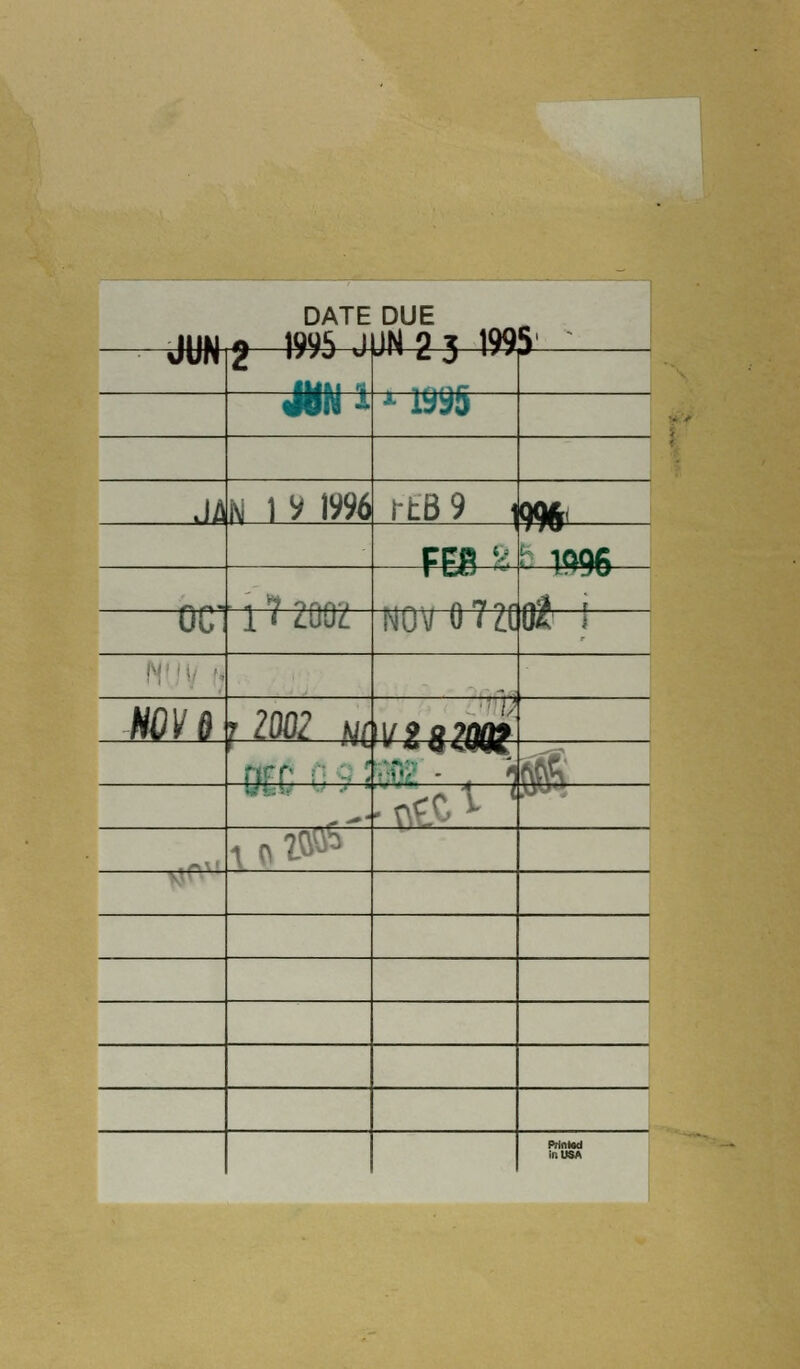 DATE DUE
JUN 2 1995 JUN 23 1995
1995
JAN 19 1996 FEB 9 1996
FEB 1996
OCT 17 2002 NOV 07 2002
NOV
NOV 2002 NOV 28 2002
DEC 09 2002 2005
DEC 1
NOV 10 2005
Printed
in USA